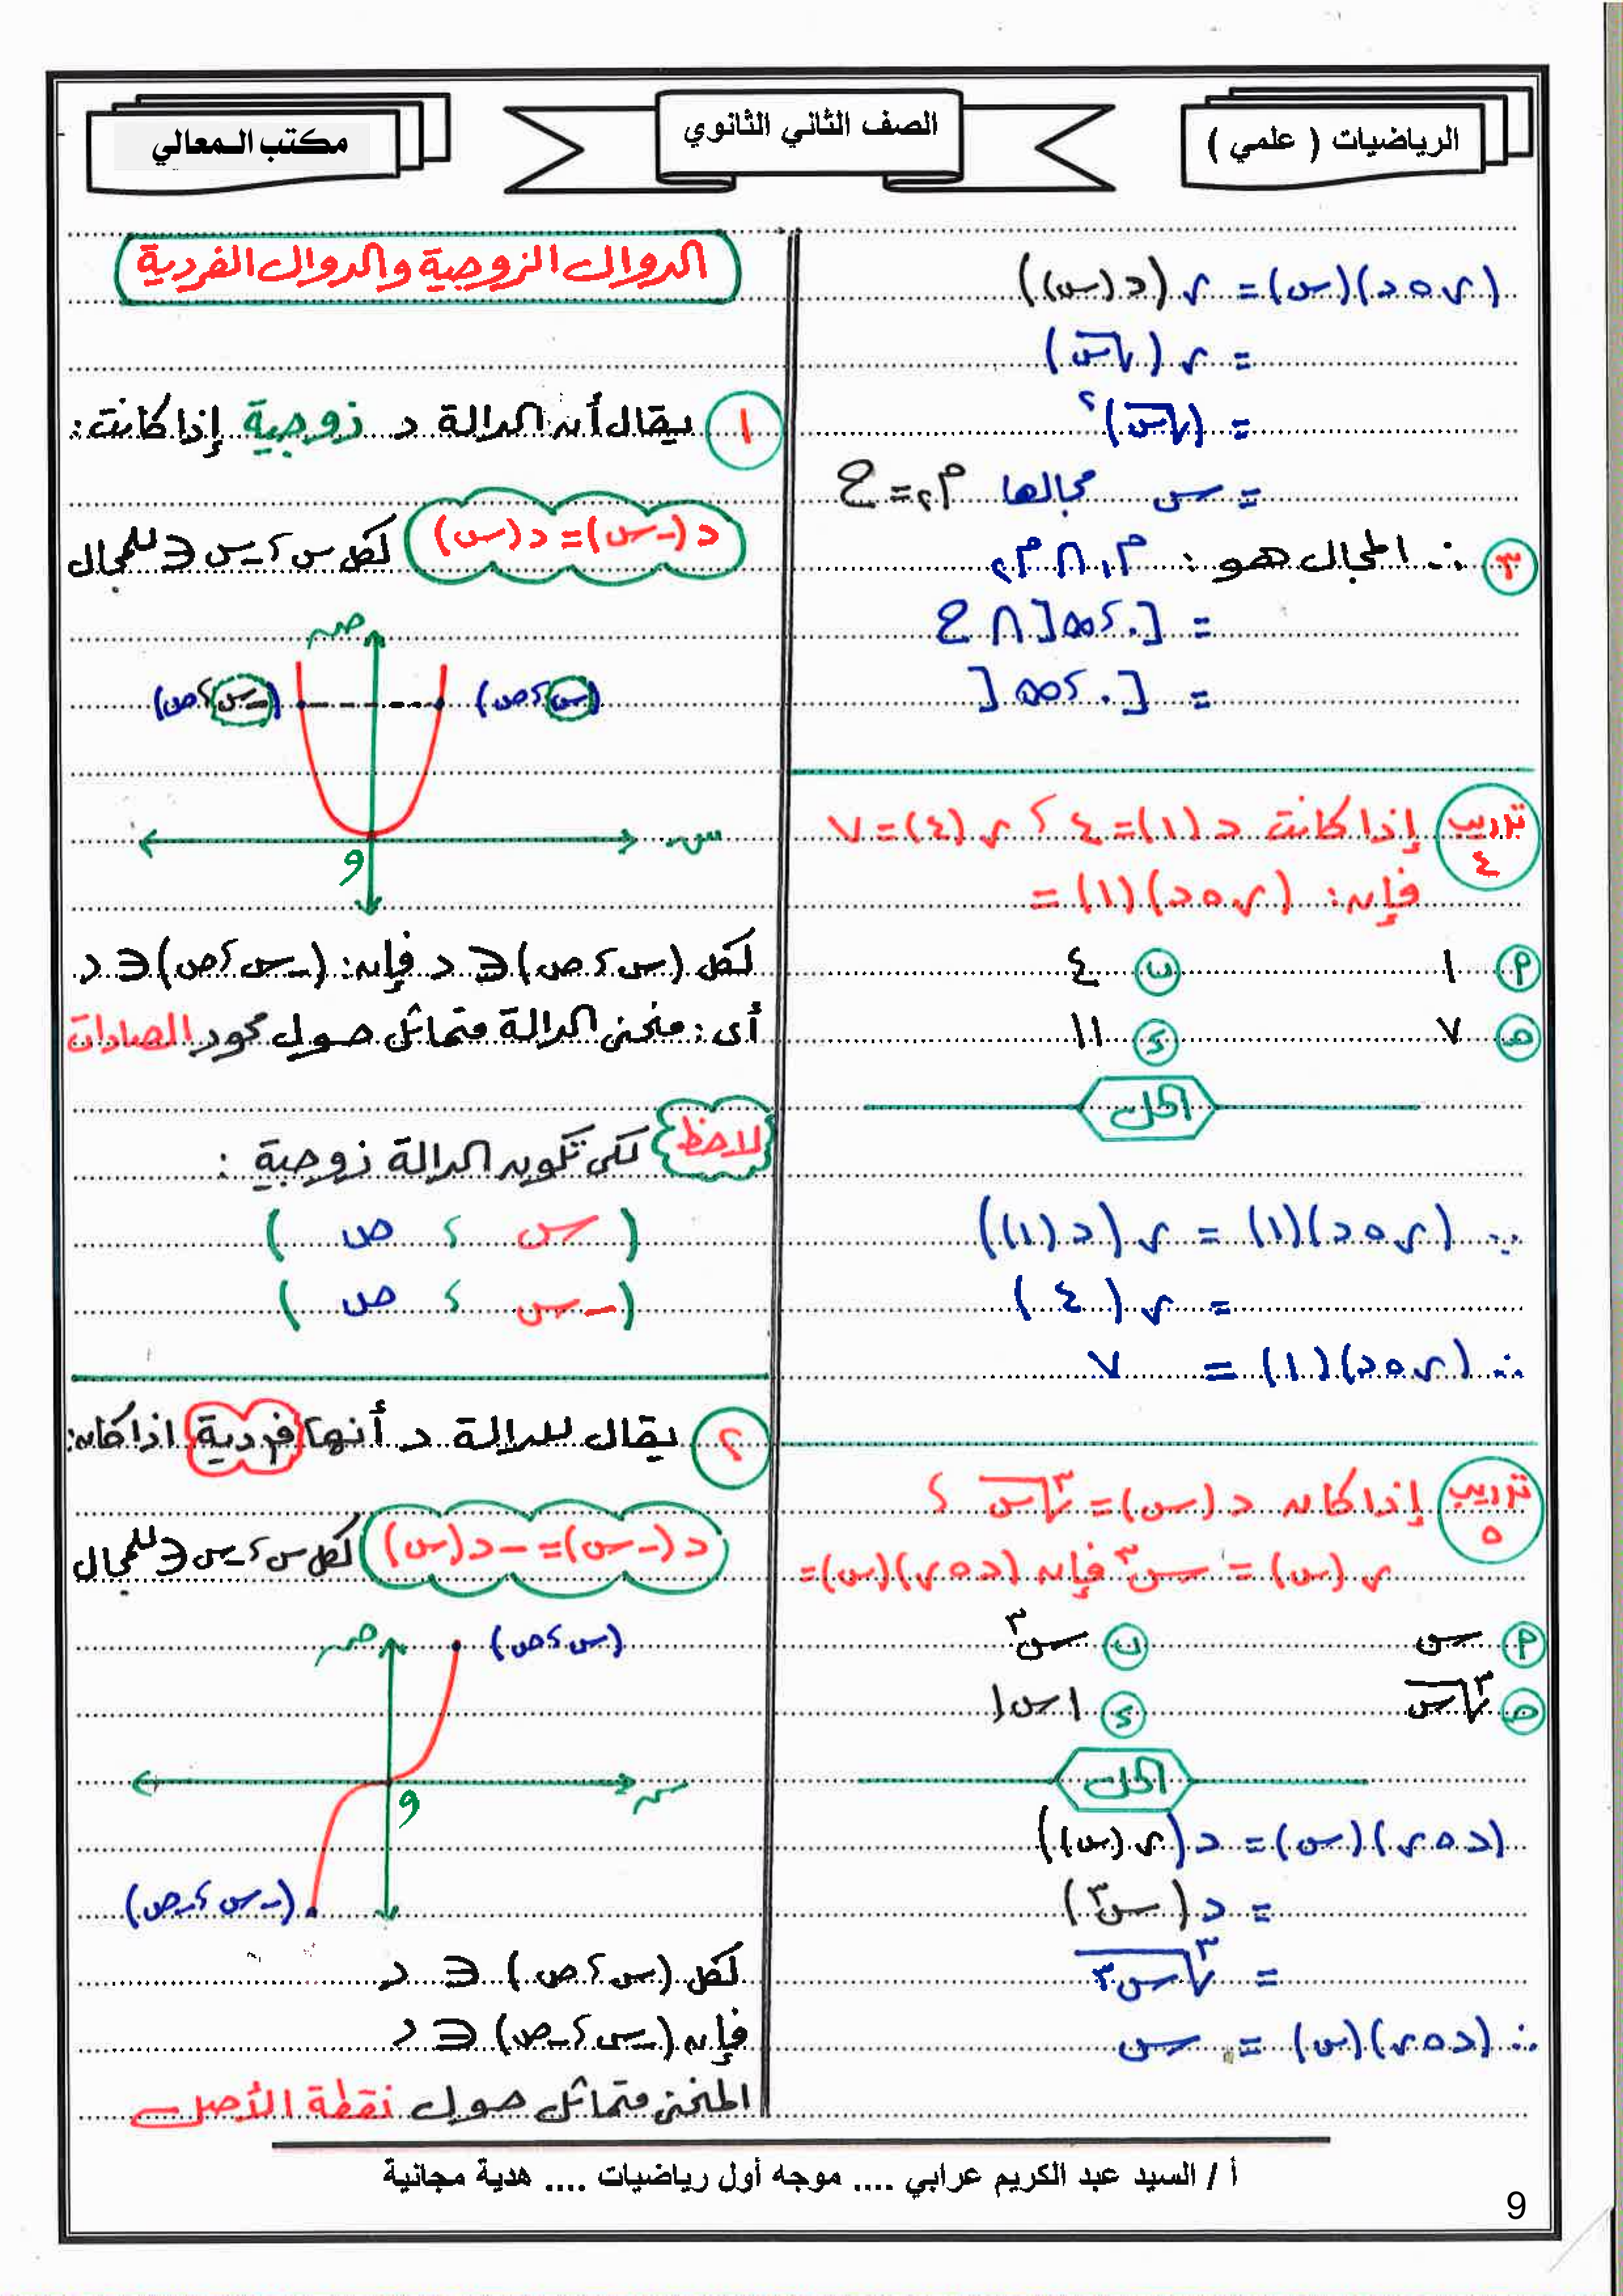 الرياضيات ( علمي )
الصف الثاني الثانوي
مكتب المعالي
(ر ∘ د)(س) = ر (د (س))
= ر (√س)
= (√س)²
= س مجالها م₂ = ح
٣ ∴ المجال هو : م₁ ∩ م₂
= [٠ ، ∞[ ∩ ح
= [٠ ، ∞[
تدريب ٤ إذا كانت د (١) = ٤ ، ر (٤) = ٧
فإن : (ر ∘ د)(١) =
أ ١ ب ٤
ج ٧ د ١١
الحل
∵ (ر ∘ د)(١) = ر (د (١))
= ر (٤)
∴ (ر ∘ د)(١) = ٧
تدريب ٥ إذا كان د (س) = ∛س ،
ر (س) = س³ فإن (د ∘ ر)(س) =
أ س ب س³
ج ∛س د |س|
الحل
(د ∘ ر)(س) = د (ر (س))
= د (س³)
= ∛س³
∴ (د ∘ ر)(س) = س
الدوال الزوجية والدوال الفردية
١ يقال أن الدالة د زوجية إذا كانت :
د (-س) = د (س) لكل س ، -س ∈ للمجال
ص
(-س ، ص) (س ، ص)
س
و
لكل (س ، ص) ∈ د فإن : (-س ، ص) ∈ د
أى : منحنى الدالة متماثل حول محور الصادات
لاحظ لكى تكون الدالة زوجية :
( س ، ص )
( -س ، ص )
٢ يقال للدالة د أنها فردية اذا كان :
د (-س) = -د (س) لكل س ، -س ∈ للمجال
ص (س ، ص)
س
و
(-س ، -ص)
لكل (س ، ص) ∈ د
فإن (-س ، -ص) ∈ د
المنحنى متماثل حول نقطة الأصل
أ / السيد عبد الكريم عرابي .... موجه أول رياضيات .... هدية مجانية
9